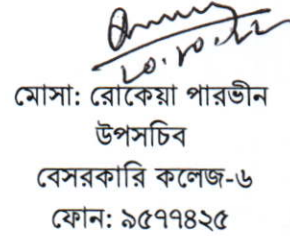 ২০.১০.২২
মোসা: রোকেয়া পারভীন
উপসচিব
বেসরকারি কলেজ-৬
ফোন: ৯৫৭৭৪২৫